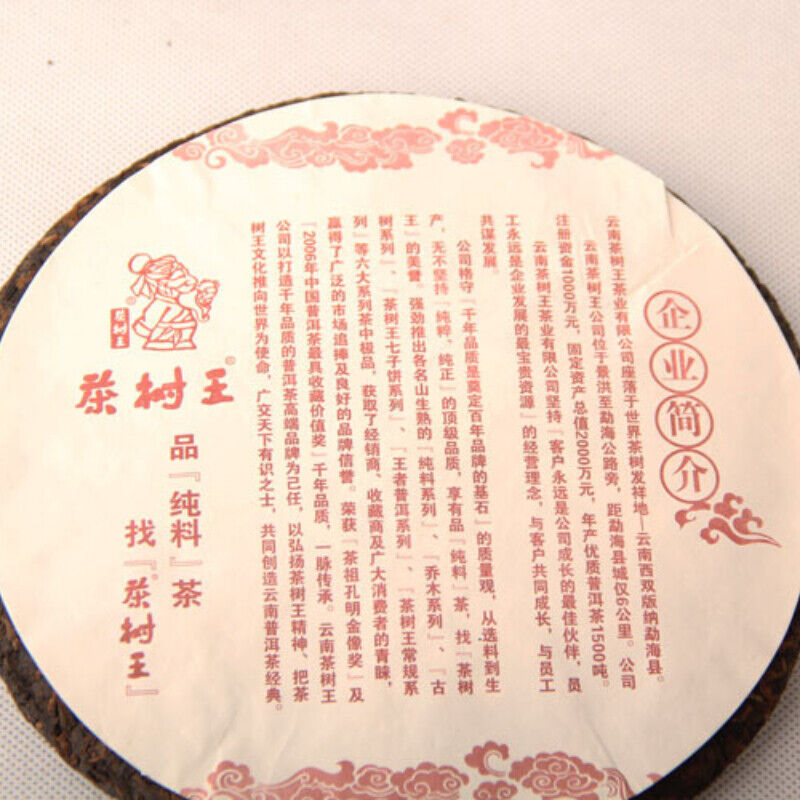 企业简介
云南茶树王茶业有限公司座落于世界茶树发祥地—云南西双版纳勐海县。
云南茶树王公司位于景洪至勐海公路旁，距勐海县城仅6公里。公司
注册资金1000万元，固定资产总值2000万元，年产优质普洱茶1500吨。
云南茶树王茶业有限公司坚持『客户永远是公司成长的最佳伙伴，员
工永远是企业发展的最宝贵资源』的经营理念，与客户共同成长，与员工
共谋发展。
公司恪守『千年品质是奠定百年品牌的基石』的质量观，从选料到生
产，无不坚持『纯粹、纯正』的顶级品质，享有品『纯料』茶，找『茶树
王』的美誉。强劲推出各名山生熟的『纯料系列』、『乔木系列』、『古
树系列』、『茶树王七子饼系列』、『王者普洱系列』、『茶树王常规系
列』等六大系列茶中极品，获取了经销商、收藏商及广大消费者的青睐，
赢得了广泛的市场追捧及良好的品牌信誉。荣获『茶祖孔明金像奖』及
『2006年中国普洱茶最具收藏价值奖』千年品质，一脉传承。云南茶树王
公司以打造千年品质的普洱茶高端品牌为己任，以弘扬茶树王精神、把茶
树王文化推向世界为使命，广交天下有识之士，共同创造云南普洱茶经典。
茶树王®
茶树王©
品『纯料』茶
找『茶树王』